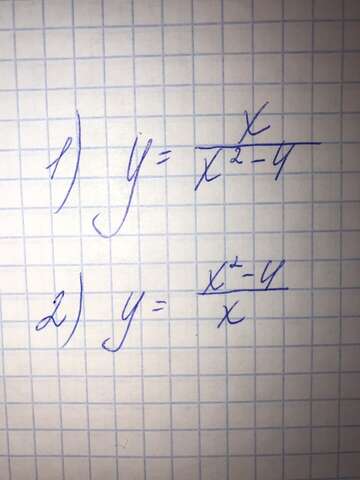 1) y = x / (x² - 4)
2) y = (x² - 4) / x